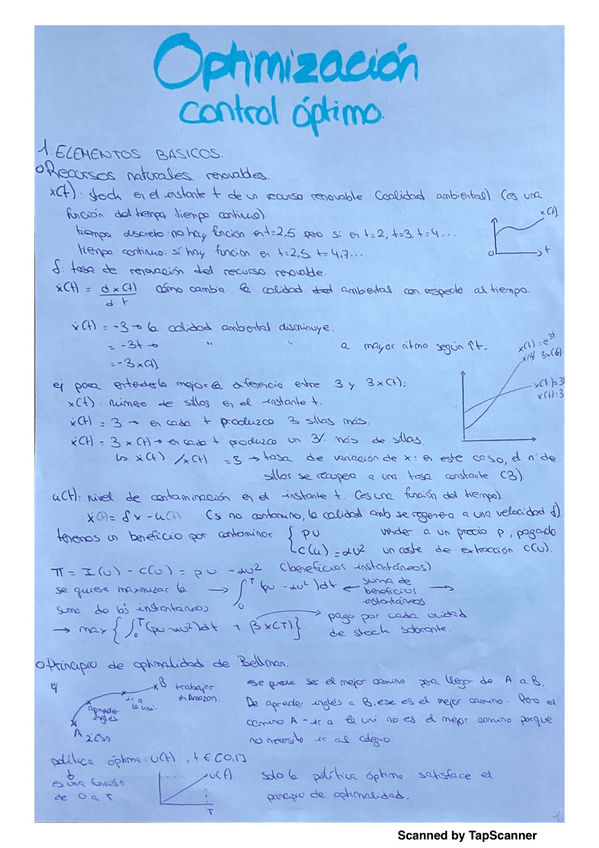 Optimización
control óptimo.
1. ELEMENTOS BASICOS.
o Recursos naturales renovables.
x(t): stock en el instante t de un recurso renovable (calidad ambiental) (es una
función del tiempo, tiempo continuo).
tiempo discreto: no hay función en t=2,5 pero si en t=2, t=3, t=4...
tiempo continuo: sí hay función en t=2,5, t=4,7...
x(t)
0
t
δ: tasa de renovación del recurso renovable.
ẋ(t) = dx(t) / dt cómo cambia la calidad ambiental con respecto al tiempo.
ẋ(t) = -3 → la calidad ambiental disminuye.
= -3t → " " " a mayor ritmo según ↑t.
= -3x(t)
ej para entender mejor la diferencia entre 3 y 3x(t):
x(t): número de sillas en el instante t.
ẋ(t) = 3 → en cada t produzco 3 sillas más.
ẋ(t) = 3x(t) → en cada t produzco un 3% más de sillas
↳ ẋ(t) / x(t) = 3 → tasa de variación de x: en este caso, el nº de
sillas se recupera a una tasa constante (3)
x(t)=e^3t
ẋ(t)=3x(t)
ẋ(t)=3
u(t): nivel de contaminación en el instante t. (es una función del tiempo)
ẋ(t) = δx - u(t) (si no contamino, la calidad amb se regenera a una velocidad δ)
tenemos un beneficio por contaminar { pu vender a un precio p, pagando
c(u) = αu² un coste de extracción c(u).
π = I(u) - c(u) = pu - αu² (beneficios instantáneos)
se quiere maximizar la → ∫₀ᵀ (pu - αu²)dt ← suma de beneficios instantáneos
suma de los instantáneos
→ max { ∫₀ᵀ (pu - αu²)dt + βx(T) } pago por cada unidad
de stock sobrante.
o Principio de optimalidad de Bellman.
ej
A
aprender inglés
ir a la uni.
B trabajar en Amazon.
ese puede ser el mejor camino para llegar de A a B.
De aprender inglés a B, ese es el mejor camino. Pero el
camino A - ir a la uni no es el mejor camino porque
no necesito ir al colegio.
política óptima: u(t), t ∈ [0,T]
es una función
de 0 a T
u(t)
T
solo la política óptima satisface el
principio de optimalidad.
1
Scanned by TapScanner